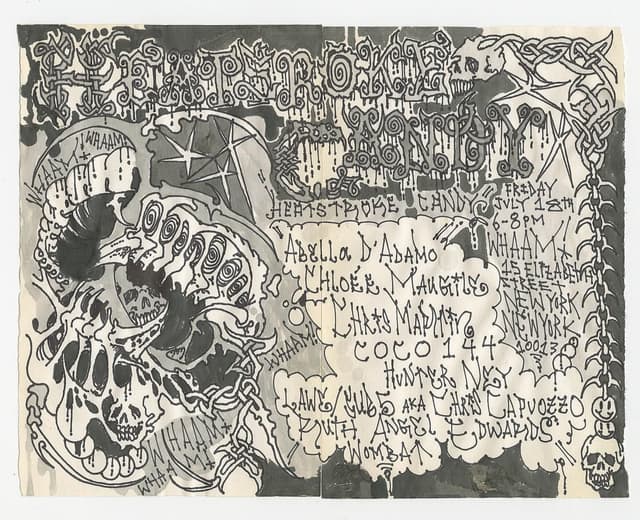 HEATSTROKE
CANDY
HEATSTROKE CANDY
FRIDAY
JULY 18TH
6-8PM
WHAAM!
45 ELIZABETH
STREET
NEW YORK
NEW YORK
10013
ABELLA D'ADAMO
CHLOÉE MAUGILE
CHRIS MARTIN
COCO 144
HUNTER NEY
AKA CHRIS CAPUOZZO
RUTH ANGEL EDWARDS
WOMBAT
WHAAM!
WHAAM!
WHAAM!
WHAAM!
WHAAM!